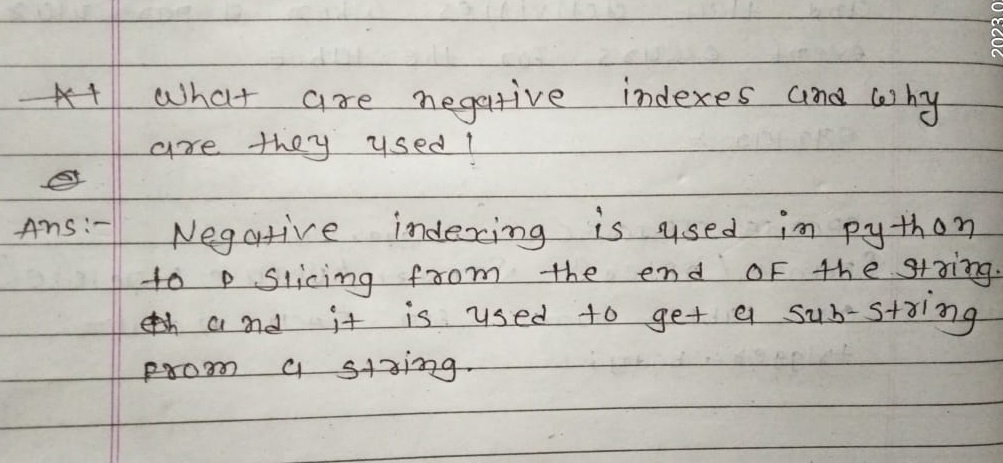 What are negative indexes and why
are they used!
Ans:- Negative indexing is used in python
to slicing from the end OF the string.
and it is used to get a sub-string
From a string.
2023.0